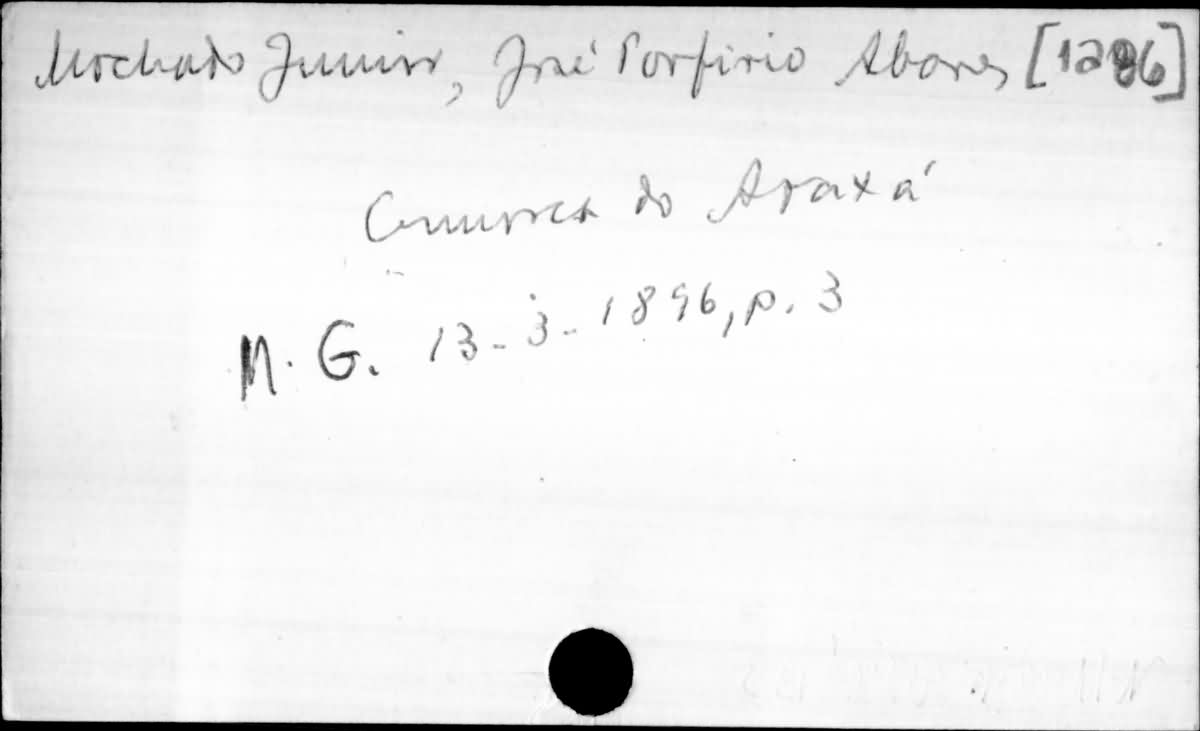 Machado Junior, José Porfirio Alvares [1286]
Comarca do Araxá
M. G. 13-3-1896, p. 3